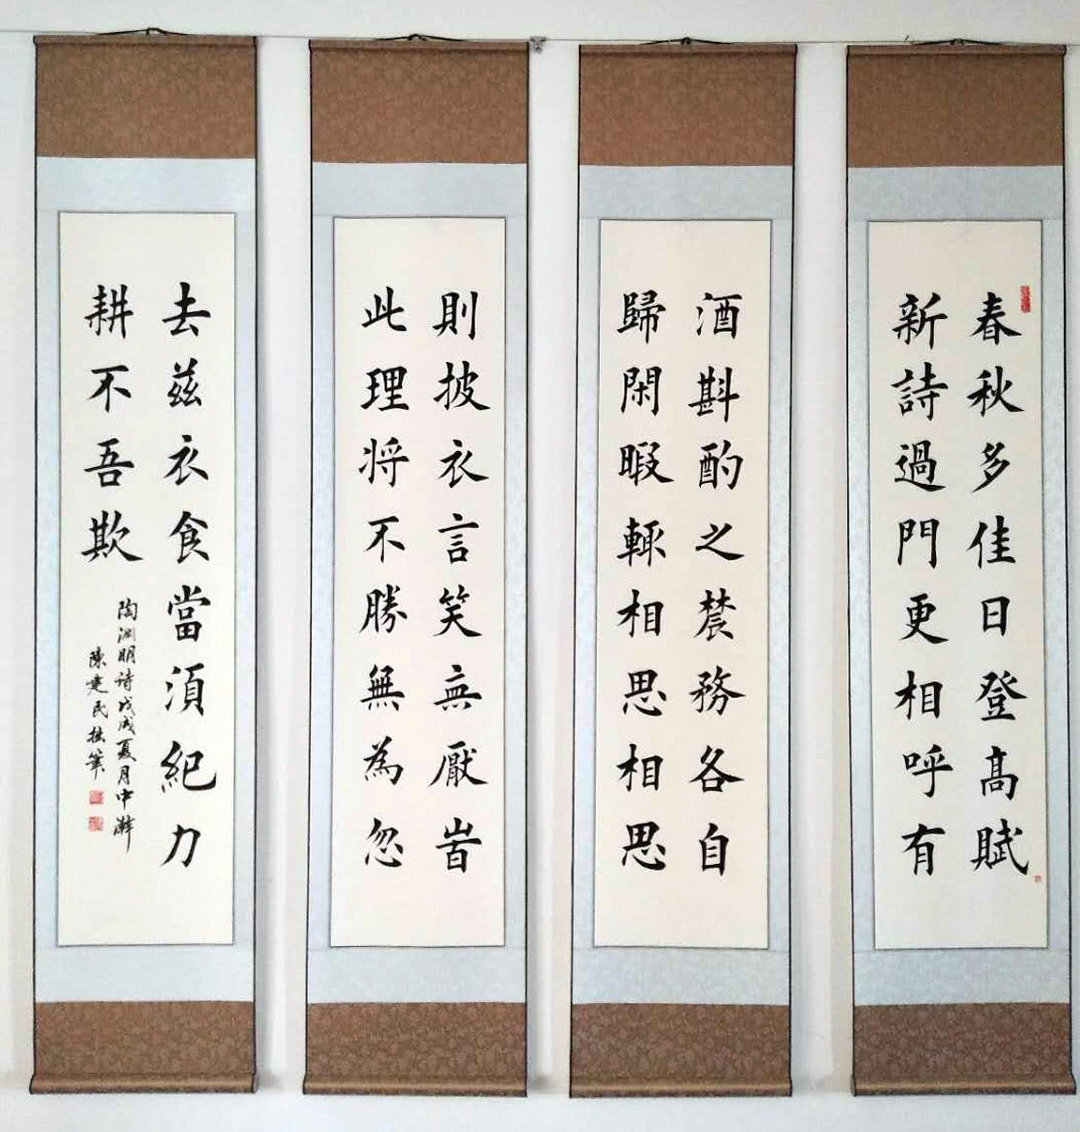 春秋多佳日登髙賦
新詩過門更相呼有
酒斟酌之農務各自
歸閑暇輙相思相思
則披衣言笑无厭旹
此理将不勝無為忽
去兹衣食當湏紀力
耕不吾欺
陶渊明诗戊戌夏月中澣
陳建民拙筆